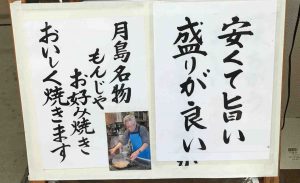 安くて旨い
盛りが良い
月島名物
もんじゃ
お好み焼き
おいしく焼きます